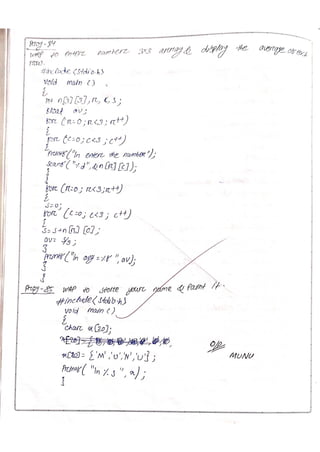 Prog-34
WAP to enter numbers 3x3 array & display the average of each
row.
#include <stdio.h>
void main ( )
{
int n[3][3], r, c, s;
float av;
for (r=0; r<3; r++)
{
for (c=0; c<3; c++)
{
printf("\n enter the number");
scanf("%d", &n[r][c]);
}
}
for (r=0; r<3; r++)
{
s=0;
for (c=0; c<3; c++)
{
s=s+n[r][c];
av= s/3;
}
printf("\n avg=%f", av);
}
}
Prog-35 WAP to store your name & print it.
#include <stdio.h>
void main ( )
{
char a[20];
a[20] = {'M','U','N','U'}; O/P
MUNU
printf("\n %s", a);
}